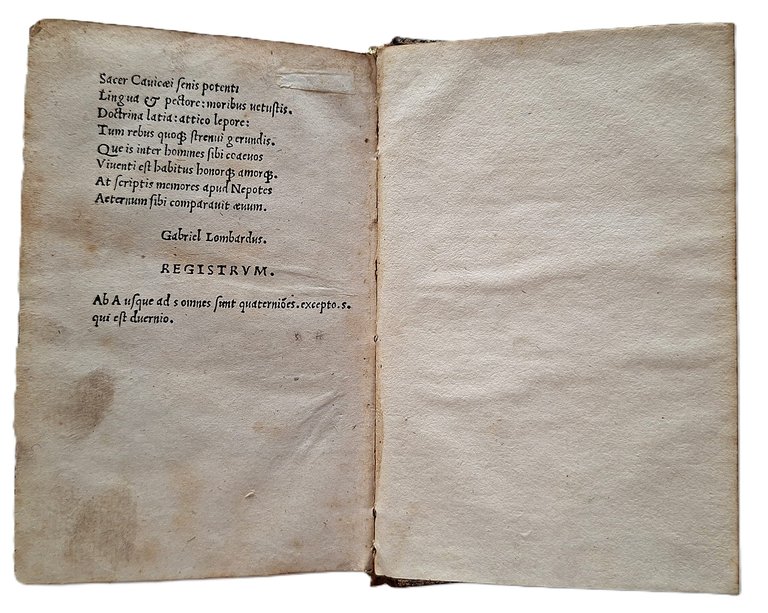 Sacer Cauicæi senis potenti
Lingua & pectore: moribus uetustis.
Doctrina latia: attico lepore:
Tum rebus quoqꝫ strenui gerundis.
Que is inter homines sibi coaeuos
Viuenti est habitus honorqꝫ amorqꝫ.
At scriptis memores apud Nepotes
Aeternum sibi comparauit æuum.
Gabriel Lombardus.
REGISTRVM.
Ab A usque ad s omnes sunt quaterniões. excepto .s.
qui est duernio.